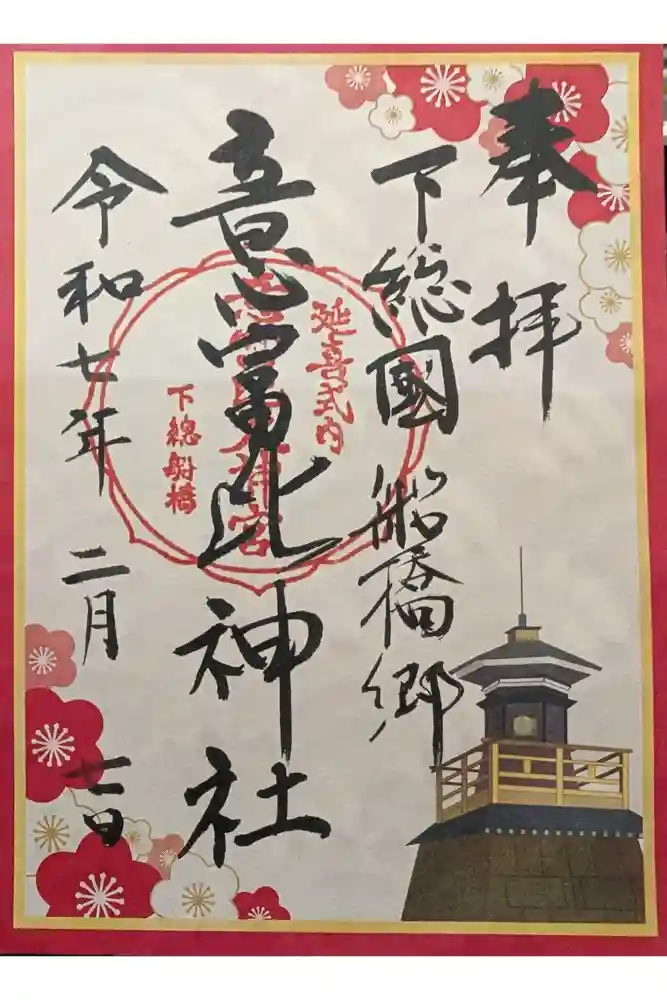 奉拝
下総國船橋郷
意富比神社
令和七年二月七日
延喜式内
神宮
下總船橋